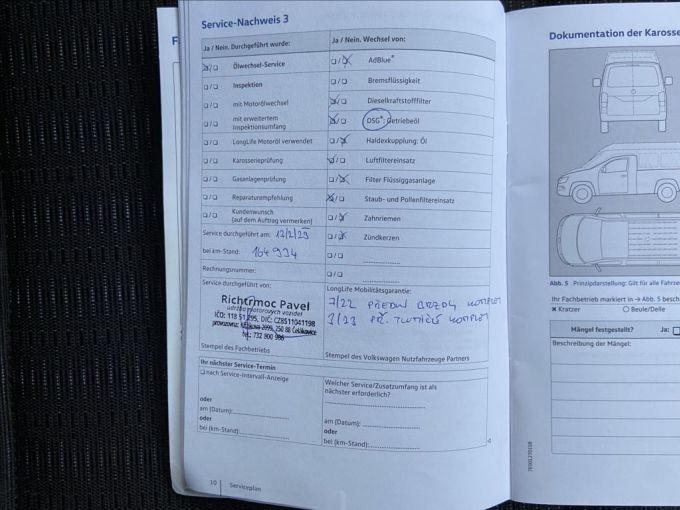 Service-Nachweis 3
Ja / Nein. Durchgeführt wurde:
Ja / Nein. Wechsel von:
Ölwechsel-Service
AdBlue®
Inspektion
Bremsflüssigkeit
mit Motorölwechsel
Dieselkraftstofffilter
mit erweitertem
Inspektionsumfang
DSG®: Getriebeöl
LongLife Motoröl verwendet
Haldexkupplung: Öl
Karosserieprüfung
Luftfiltereinsatz
Gasanlagenprüfung
Filter Flüssiggasanlage
Reparaturempfehlung
Staub- und Pollenfiltereinsatz
Kundenwunsch
(auf dem Auftrag vermerken)
Zahnriemen
Service durchgeführt am: 13/2/23
Zündkerzen
bei km-Stand: 164 994
Rechnungsnummer:
Service durchgeführt von:
LongLife Mobilitätsgarantie:
Richtrmoc Pavel
údržba motorových vozidel
IČO: 118 51 295, DIČ: CZ8511041198
tel.: 732 800 986
7/22 PŘEDNÍ BRZDY KOMPLET
3/23 PŘ. TLUMIČE KOMPLET
Stempel des Fachbetriebs
Stempel des Volkswagen Nutzfahrzeuge Partners
Ihr nächster Service-Termin
nach Service-Intervall-Anzeige
Welcher Service/Zusatzumfang ist als
nächster erforderlich?
oder
am (Datum):
am (Datum):
oder
oder
bei (km-Stand):
bei (km-Stand):
4
10 Serviceplan
Dokumentation der Karosse
Abb. 5 Prinzipdarstellung: Gilt für alle Fahrze
Ihr Fachbetrieb markiert in → Abb. 5 besch
× Kratzer ○ Beule/Delle
Mängel festgestellt? Ja:
Beschreibung der Mängel: